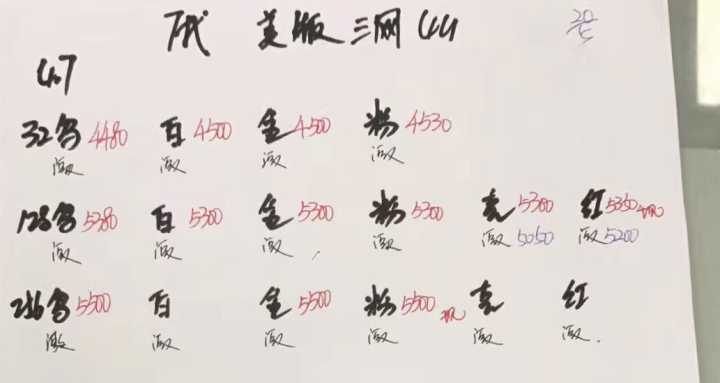 7代 美版三网 4.4
4.7
32务 4480 百 4500 金 4500 粉 4530
激 激 激 激
128务 5380 白 5300 金 5300 粉 5300 亮 5300 红 5350
激 激 激 激 激 5050 激 5200
256务 5500 百 金 5500 粉 5500 亮 红
激 激 激 激 激 激